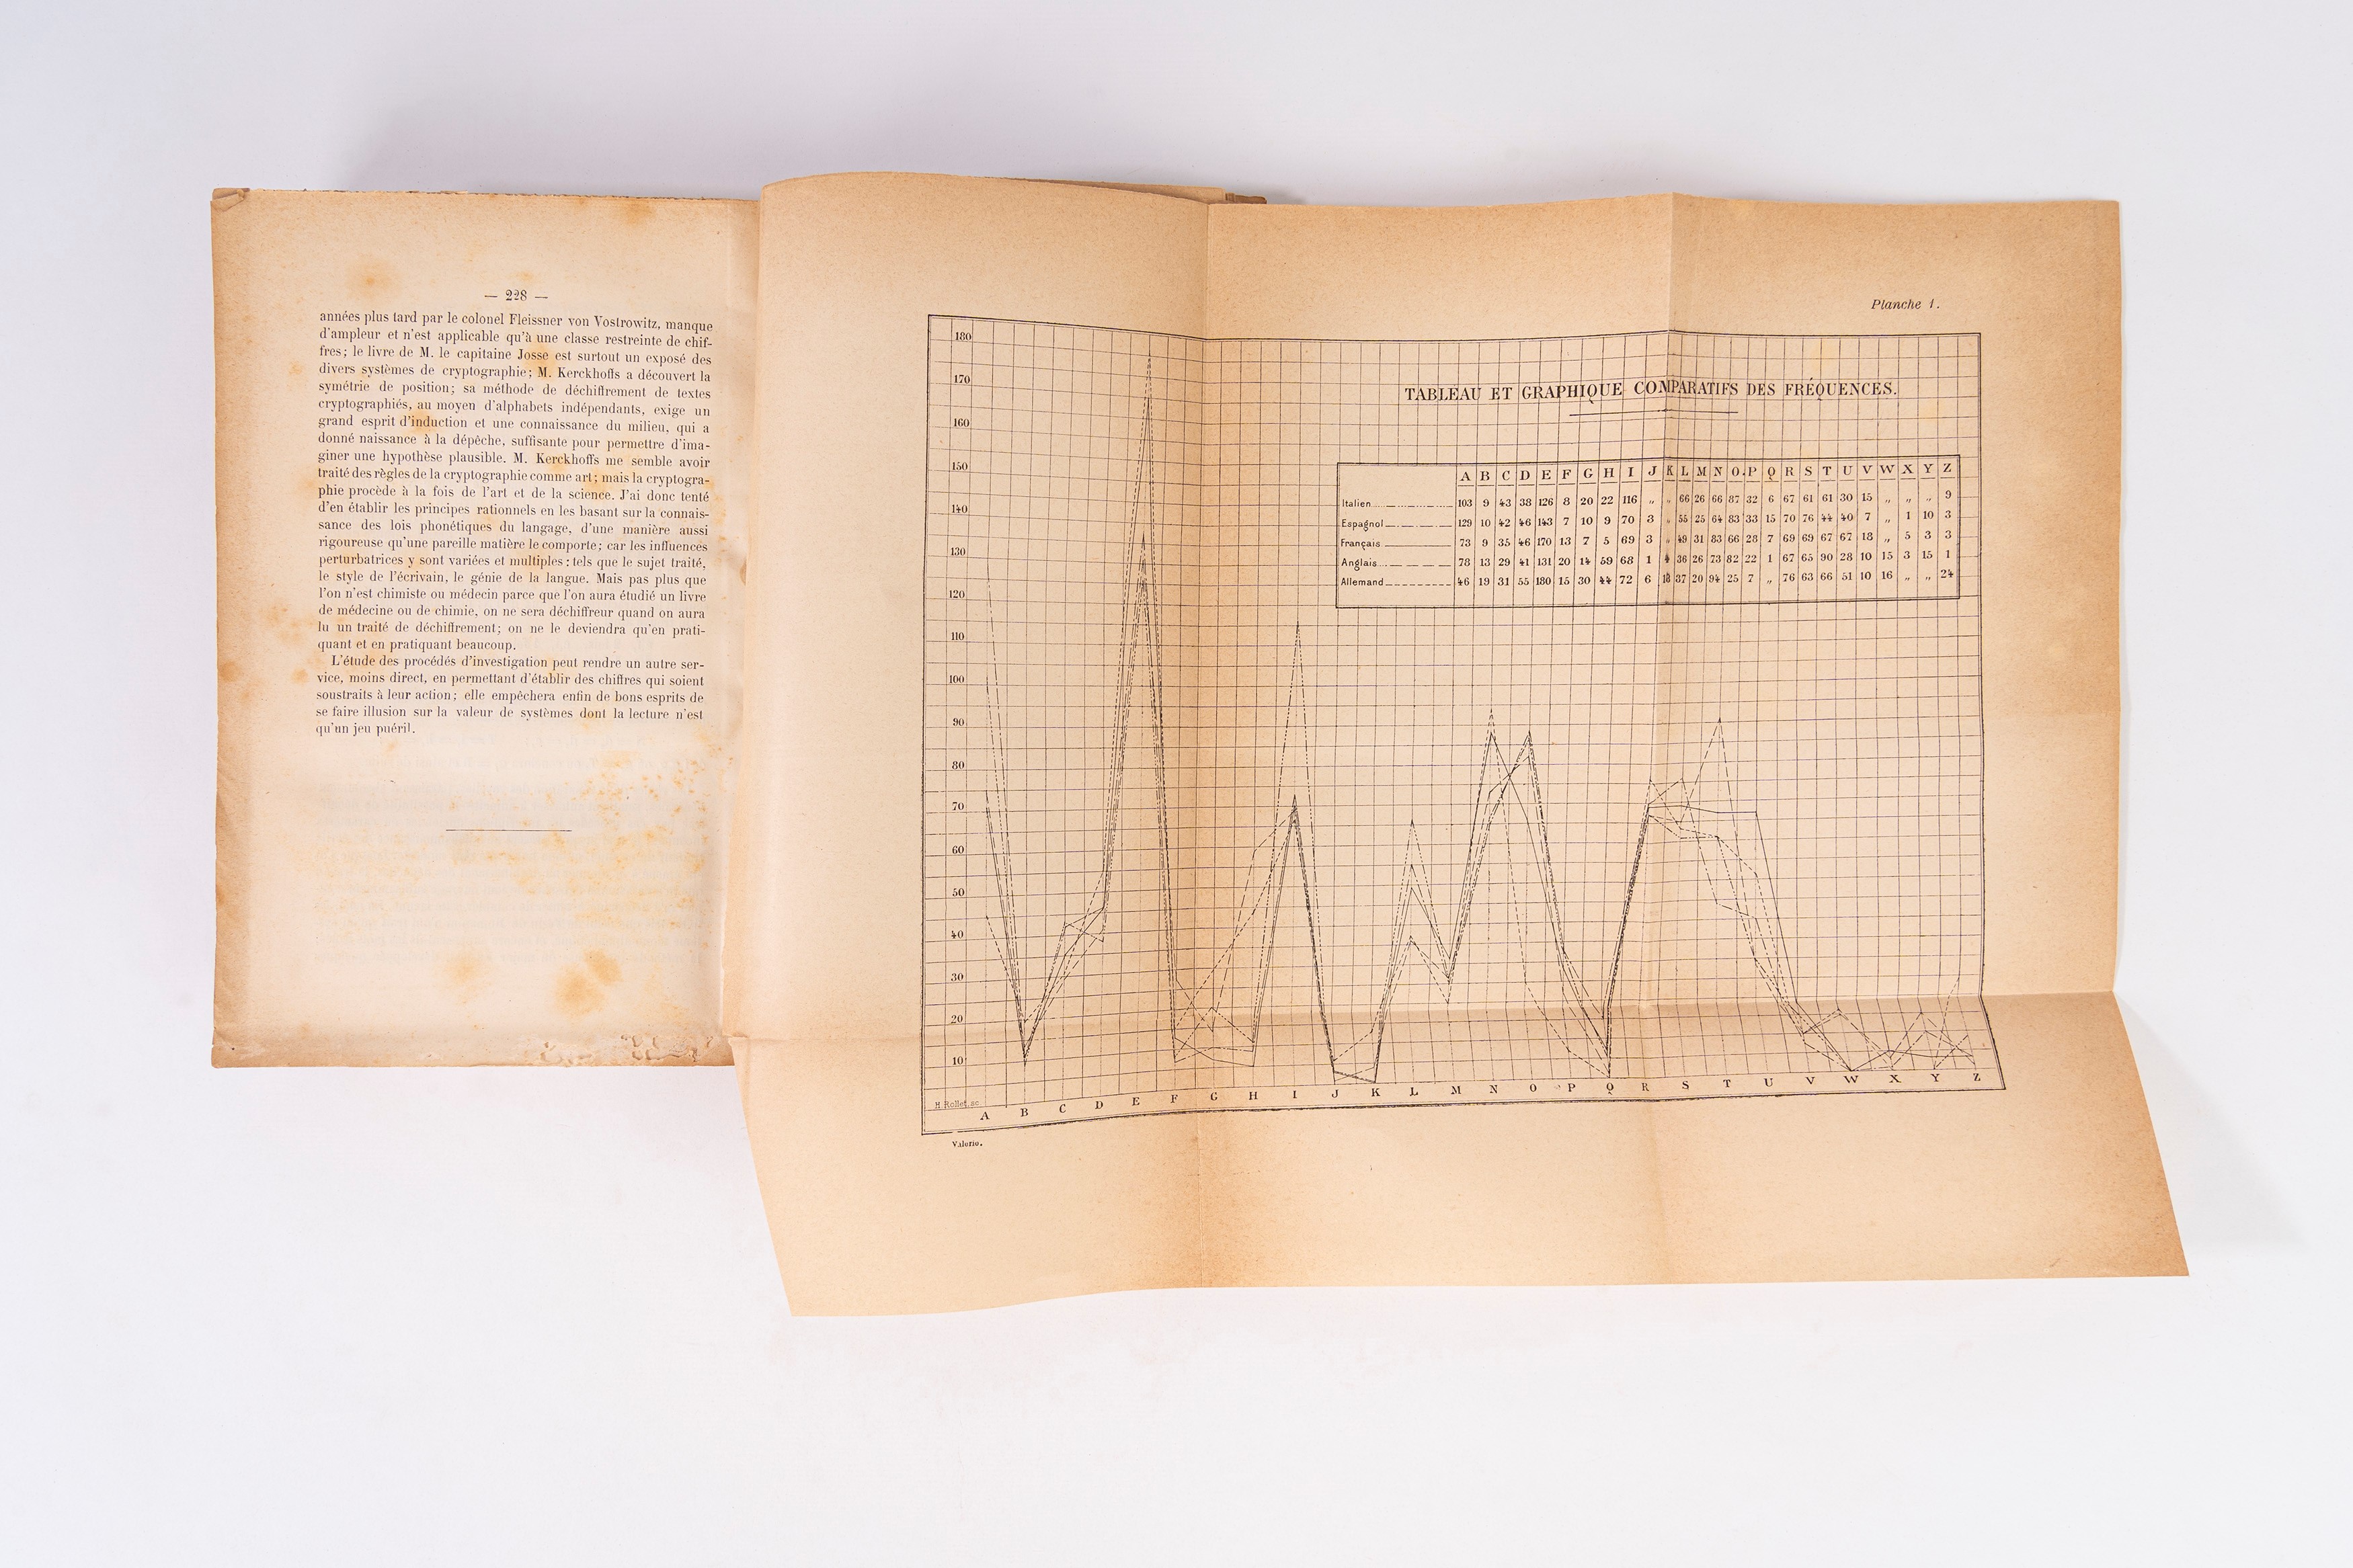 — 228 —
années plus tard par le colonel Fleissner von Vostrowitz, manque
d'ampleur et n'est applicable qu'à une classe restreinte de chif-
fres; le livre de M. le capitaine Josse est surtout un exposé des
divers systèmes de cryptographie; M. Kerckhoffs a découvert la
symétrie de position; sa méthode de déchiffrement de textes
cryptographiés, au moyen d'alphabets indépendants, exige un
grand esprit d'induction et une connaissance du milieu, qui a
donné naissance à la dépêche, suffisante pour permettre d'ima-
giner une hypothèse plausible. M. Kerckhoffs me semble avoir
traité des règles de la cryptographie comme art; mais la cryptogra-
phie procède à la fois de l'art et de la science. J'ai donc tenté
d'en établir les principes rationnels en les basant sur la connais-
sance des lois phonétiques du langage, d'une manière aussi
rigoureuse qu'une pareille matière le comporte; car les influences
perturbatrices y sont variées et multiples: tels que le sujet traité,
le style de l'écrivain, le génie de la langue. Mais pas plus que
l'on n'est chimiste ou médecin parce que l'on aura étudié un livre
de médecine ou de chimie, on ne sera déchiffreur quand on aura
lu un traité de déchiffrement; on ne le deviendra qu'en prati-
quant et en pratiquant beaucoup.
L'étude des procédés d'investigation peut rendre un autre ser-
vice, moins direct, en permettant d'établir des chiffres qui soient
soustraits à leur action; elle empêchera enfin de bons esprits de
se faire illusion sur la valeur de systèmes dont la lecture n'est
qu'un jeu puéril.
Planche 1.
TABLEAU ET GRAPHIQUE COMPARATIFS DES FRÉQUENCES.
A B C D E F G H I J K L M N O P Q R S T U V W X Y Z
Italien 103 9 43 38 126 8 20 22 116 „ „ 66 26 66 87 32 6 67 61 61 30 15 „ „ „ 9
Espagnol 129 10 42 46 143 7 10 9 70 3 „ 55 25 64 83 33 15 70 76 44 40 7 „ 1 10 3
Français 73 9 35 46 170 13 7 5 69 3 „ 49 31 83 66 28 7 69 69 67 67 18 „ 5 3 3
Anglais 78 13 29 41 131 20 14 59 68 1 4 36 26 73 82 22 1 67 65 90 28 10 15 3 15 1
Allemand 46 19 31 55 180 15 30 44 72 6 18 37 20 94 25 7 „ 76 63 66 51 10 16 „ „ 24
180
170
160
150
140
130
120
110
100
90
80
70
60
50
40
30
20
10
A B C D E F G H I J K L M N O P Q R S T U V W X Y Z
H Rollet. sc.
Valerio.